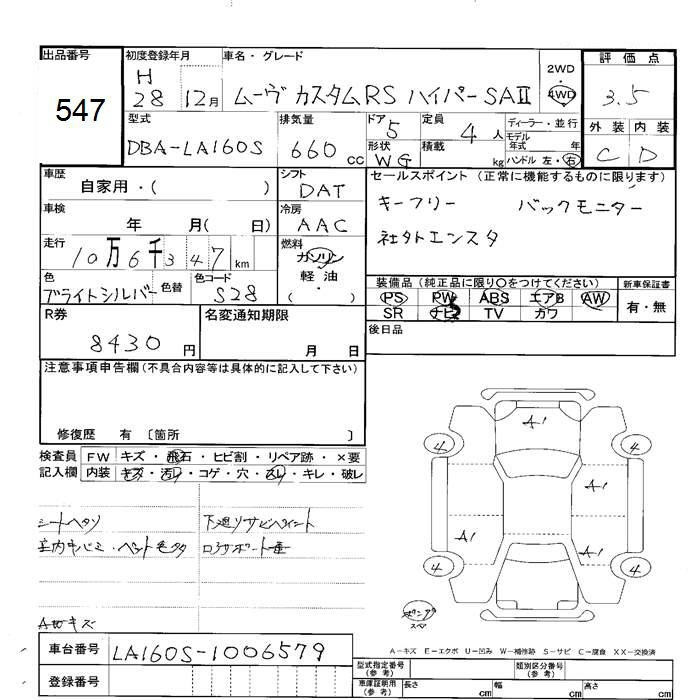 出品番号
547
初度登録年月
H
28 12月
車名・グレード
ムーヴ カスタムRS ハイパーSAⅡ
2WD
4WD
評価点
3.5
外装 内装
C D
型式
DBA-LA160S
排気量
660 cc
ドア 5
形状
WG
定員 4 人
積載 kg
ディーラー・並行
モデル
年式 年
ハンドル 左・右
車歴
自家用・( )
シフト
DAT
セールスポイント (正常に機能するものに限ります)
キーフリー バックモニター
社外エンスタ
車検
年 月( 日)
冷房
AAC
走行
10万6千347 km
燃料
ガソリン
軽油
( ・ )
色
ブライトシルバー
色替
色コード
S28
装備品(純正品に限り○をつけてください)
新車保証書
PS PW ABS エアB AW
SR ナビ TV カワ
有・無
R券
8430 円
名変通知期限
月 日
後日品
注意事項申告欄(不具合内容等は具体的に記入して下さい)
修復歴 有 〔箇所 〕
検査員
記入欄
FW キズ・飛石・ヒビ割・リペア跡・×要
内装 キズ・汚れ・コゲ・穴・スレ・キレ・破レ
シートヘタリ
下廻りサビペイント
A-1
4 4
A-1
A-1
A-1
4 4
A-キズ E-エクボ U-凹み W-補修跡 S-サビ C-腐食 XX-交換済
車台番号
LA160S-1006579
登録番号
型式指定番号
(参考)
類別区分番号
(参考)
車庫証明用
(参考)
長さ cm 幅 cm 高さ cm